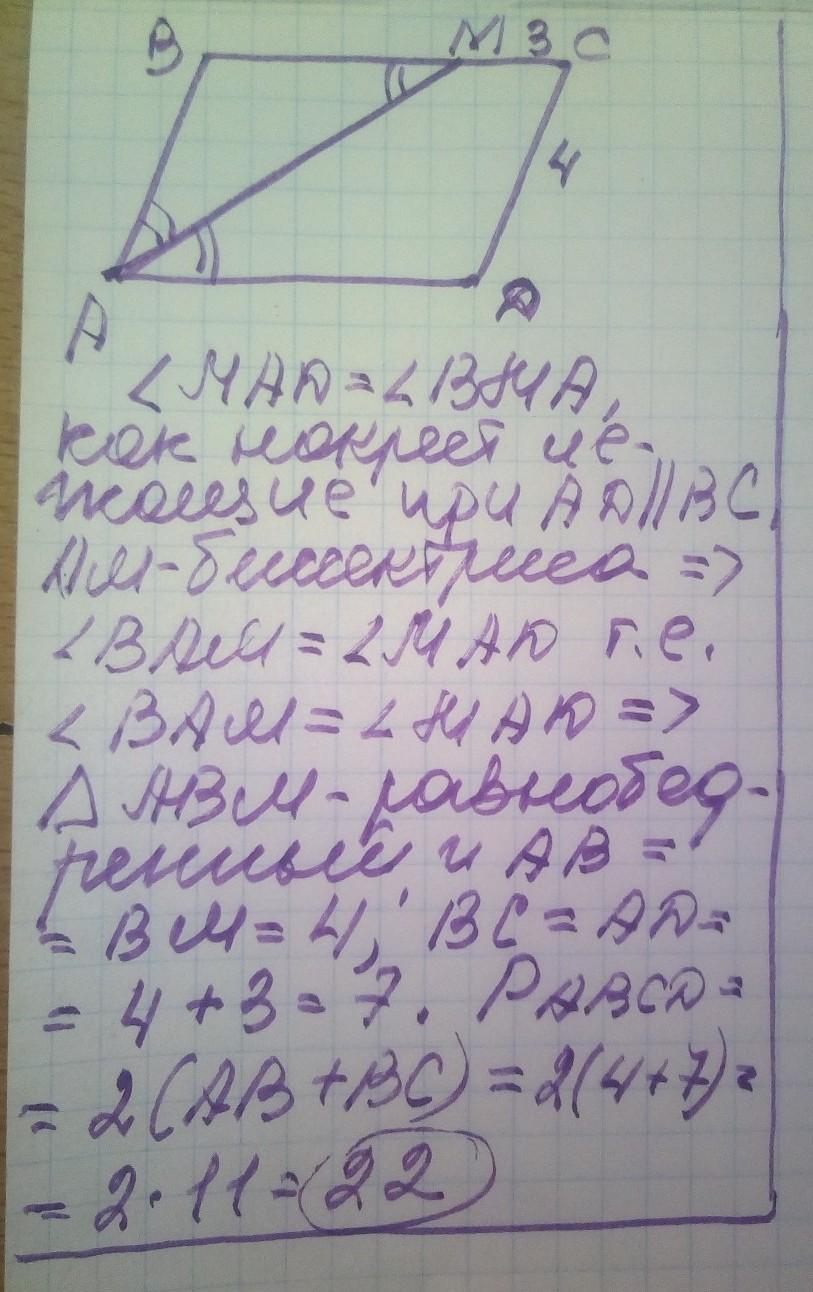 B M 3 C
4
A D
∠MAD = ∠BMA,
как накрест ле-
жащие при AD || BC
AM - биссектриса =>
∠BAM = ∠MAD т.е.
∠BAM = ∠MAD =>
△ABM - равнобед-
ренный и AB =
= BM = 4; BC = AD =
= 4 + 3 = 7. PABCD =
= 2(AB + BC) = 2(4+7) =
= 2 · 11 = 22